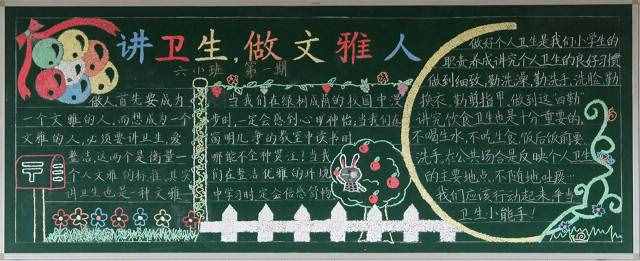 讲卫生，做文雅人
六小班 第一期
做人首先要成为
一个文雅的人，而想成为一个
文雅的人，必须要讲卫生，爱
整洁，这两个是衡量一
个人文雅的标准，其实
讲卫生也是一种文雅
当我们在绿树成荫的校园中漫
步时，一定会感到心旷神怡，当我们在
窗明几净的教室中读书时，
哪能不全神贯注！当我
们在整洁优雅的环境
中学习时定会倍感舒畅
做好个人卫生是我们小学生的
职责养成讲究个人卫生的良好习惯
做到细致，勤洗澡，勤洗手，洗脸，勤
换衣，勤剪指甲，做到这四勤
讲究饮食卫生也是十分重要的，
不喝生水，不吃生食，饭后饭前要
洗手，在公共场合是反映个人卫生
的主要地点，不随地吐痰…
我们应该行动起来，争当
卫生小能手！